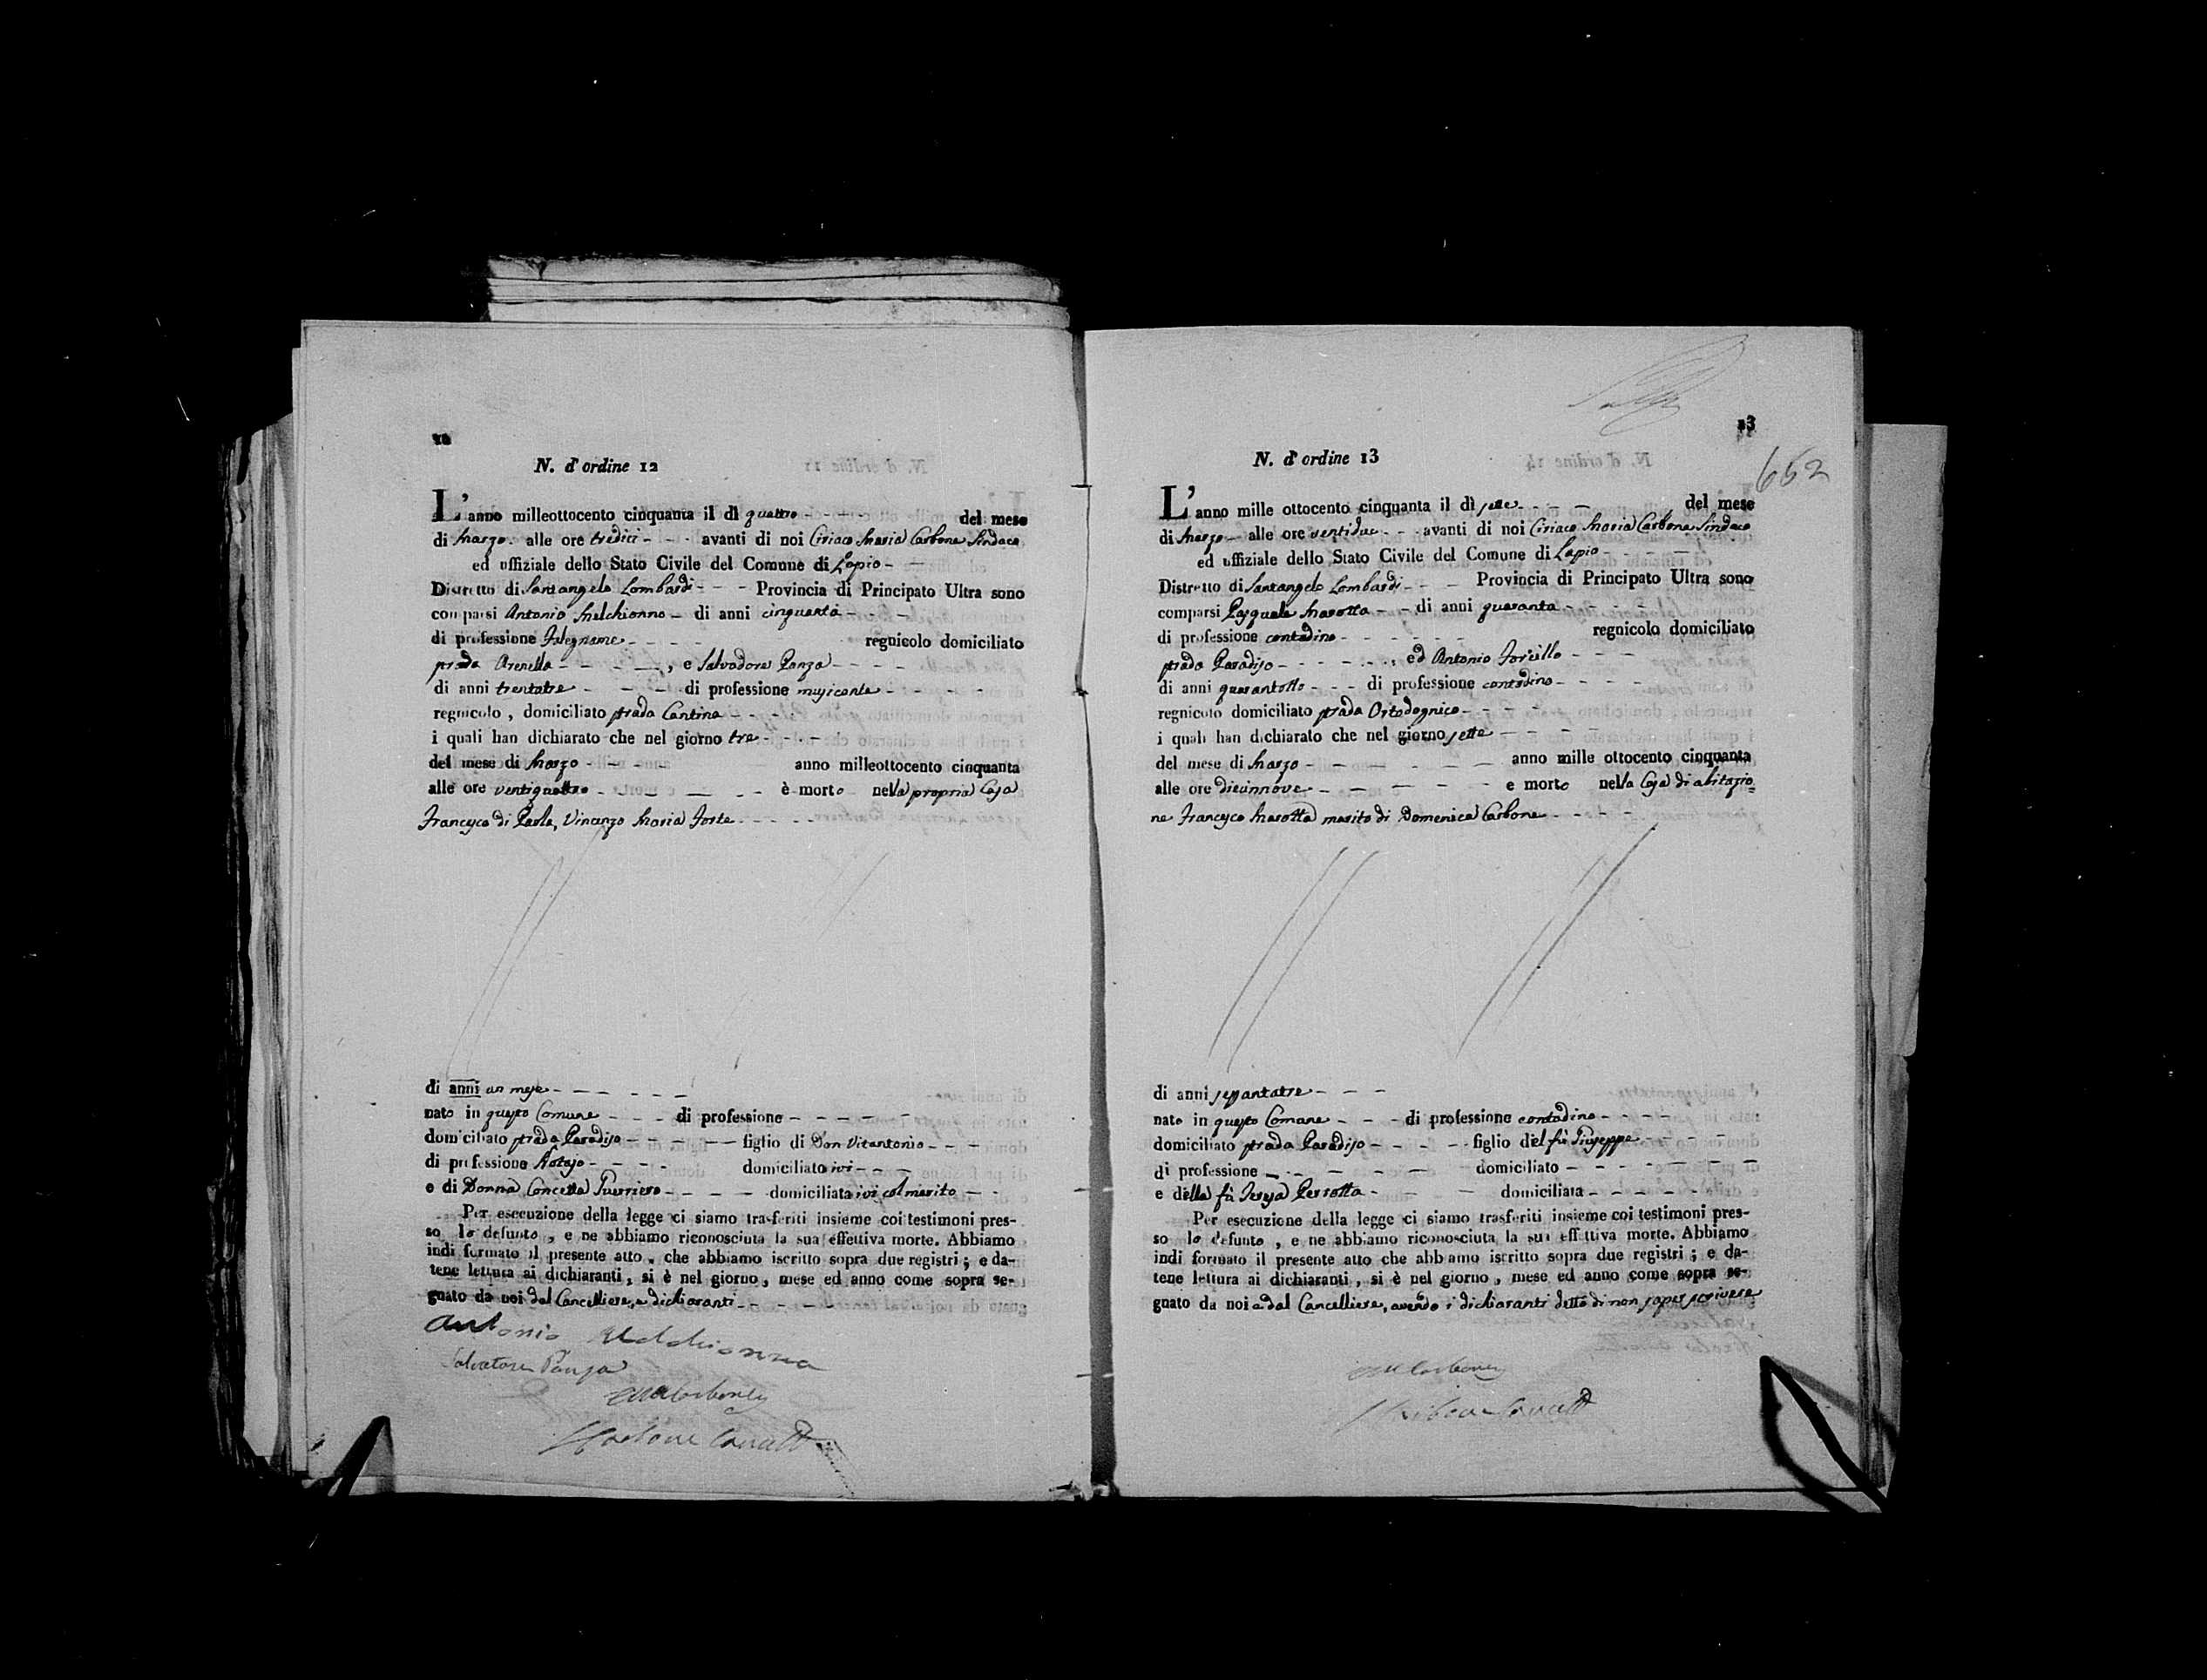 12
N. d'ordine 12
L'anno milleottocento cinquanta il dì quattro - - - - del mese
di Marzo - alle ore tredici - - - avanti di noi Ciriaco Maria Carbone Sindaco
ed uffiziale dello Stato Civile del Comune di Lapio - -
Distretto di Santangelo Lombardi - - - Provincia di Principato Ultra sono
comparsi Antonio Melchionno - di anni cinquanta - - -
di professione Falegname - - - - regnicolo domiciliato
strada Arenella - - - - - , e Salvadore Panza - - - -
di anni trentatre - - - - di professione musicante - - - -
regnicolo , domiciliato strada Cantina - - -
i quali han dichiarato che nel giorno tre - - - -
del mese di Marzo - - - - anno milleottocento cinquanta
alle ore ventiquattro - - - - - - è morto nella propria Casa
Francesco di Paola, Vincenzo Maria Forte - - - - -
di anni un mese - - - - - -
nato in questo Comune - - - di professione - - - - -
domiciliato strada Paradiso - - - - - figlio di Don Vitantonio - - -
di professione Notajo - - - - domiciliato ivi - - -
e di Donna Concetta Guerriero - - - - domiciliata ivi col marito - -
Per esecuzione della legge ci siamo trasferiti insieme coi testimoni pres-
so lo defunto , e ne abbiamo riconosciuta la sua effettiva morte. Abbiamo
indi formato il presente atto , che abbiamo iscritto sopra due registri ; e da-
tene lettura ai dichiaranti , si è nel giorno , mese ed anno come sopra se-
gnato da noi dal Cancelliere, e dichiaranti - - - - -
Antonio Melchionna
Salvatore Panza
CMCarbone
13
652
N. d'ordine 13
L'anno mille ottocento cinquanta il dì sette - - - del mese
di Marzo - alle ore ventidue - - - avanti di noi Ciriaco Maria Carbone Sindaco
ed uffiziale dello Stato Civile del Comune di Lapio - - - -
Distretto di Santangelo Lombardi - - - Provincia di Principato Ultra sono
comparsi Pasquale Marotta - - di anni quaranta - - - -
di professione contadino - - - - - regnicolo domiciliato
strada Paradiso - - - - - - , ed Antonio Forcillo - - -
di anni quarantotto - - - di professione contadino - - - -
regnicolo domiciliato strada Ortodognico - - - -
i quali han dichiarato che nel giorno sette - - - -
del mese di Marzo - - - - - - anno mille ottocento cinquanta
alle ore diecinnove - - - - - - e morto nella Casa di abitazio=
ne Francesco Marotta marito di Domenica Carbone - - - -
di anni sessantatre - - -
nato in questo Comune - - - di professione contadino - - - -
domiciliato strada Paradiso - - - - - figlio del fù Giuseppe - - - -
di professione - - - - - domiciliato - - - - - - -
e della fù Teresa Perrotta - - - domiciliata - - - - -
Per esecuzione della legge ci siamo trasferiti insieme coi testimoni pres-
so lo defunto , e ne abbiamo riconosciuta la sua effettiva morte. Abbiamo
indi formato il presente atto che abbiamo iscritto sopra due registri ; e da-
tene lettura ai dichiaranti , si è nel giorno , mese ed anno come sopra se-
gnato da noi e dal Cancelliere, avendo i dichiaranti detto di non saper scrivere
CMCarbone